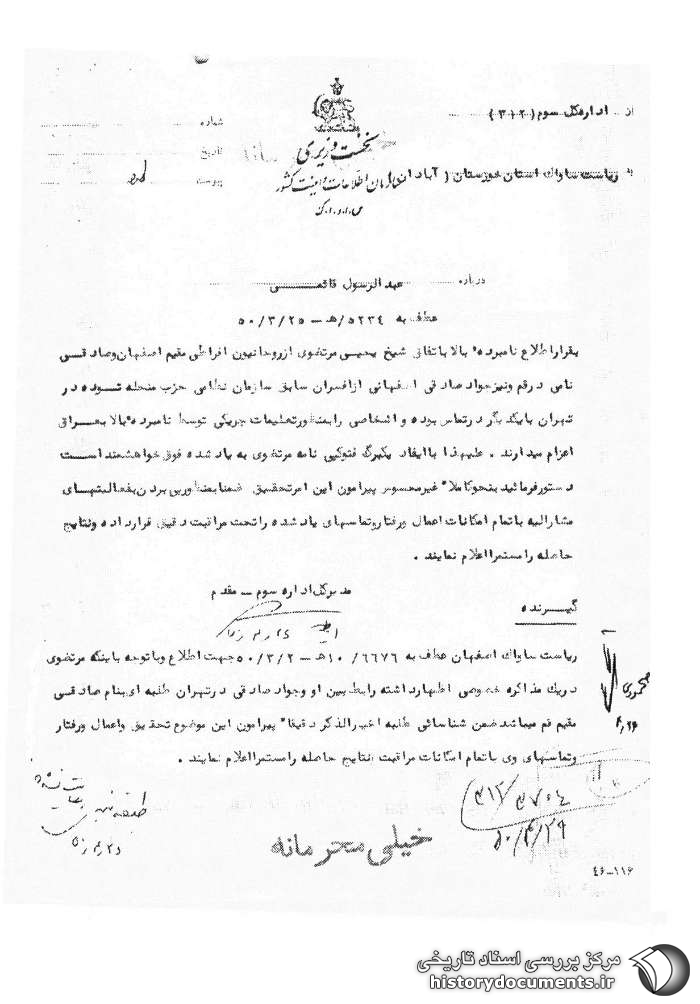 از اداره‌کل سوم (۳۱۲)
شماره
نخست وزیری
تاریخ
به ریاست ساواک استان خوزستان (آبادان)
سازمان اطلاعات و امنیت کشور
پیوست دارد
س.ا.و.ا.ک
درباره عبدالرسول قائمی
عطف به ۵۲۳۴/هـ – ۵۰/۳/۲۵
بقرار اطلاع نامبرده بالا باتفاق شیخ یحیی مرتضوی از روحانیون افراطی مقیم اصفهان و صادقی
نامی در قم و نیز جواد صادقی اصفهانی از افسران سابق سازمان نظامی حزب منحله توده در
تهران با یکدیگر در تماس بوده و اشخاصی را بمنظور تعلیمات چریکی توسط نامبرده بالا بعراق
اعزام میدارند . علیهذا با ایفاد یکبرگ فتوکپی نامه مرتضوی به یاد شده فوق خواهشمند است
دستور فرمائید بنحو کاملا غیرمحسوس پیرامون این امر تحقیق ضمنا بمنظور پی بردن بفعالیتهای
مشارالیه با تمام امکانات اعمال و رفتار و تماسهای یاد شده را تحت مراقبت دقیق قرار داده و نتایج
حاصله را مستمرا اعلام نمایند .
مدیرکل اداره سوم – مقدم
گیرنده
ریاست ساواک اصفهان عطف به ۶۶۷۶/۱۰هـ – ۵۰/۳/۲ جهت اطلاع و با توجه باینکه مرتضوی
در یک مذاکره خصوصی اظهار داشته رابط بین او و جواد صادقی در تهران طلبه ای بنام صادقی
مقیم قم میباشد ضمن شناسائی طلبه اخیرالذکر دقیقا پیرامون این موضوع تحقیق و اعمال و رفتار
و تماسهای وی با تمام امکانات مراقبت و نتایج حاصله را مستمرا اعلام نمایند .
۳۱۲/۳۷۰۴
۵۰/۴/۲۹
خیلی محرمانه
۴۶-۱۱۶
مرکز بررسی اسناد تاریخی
historydocuments.ir